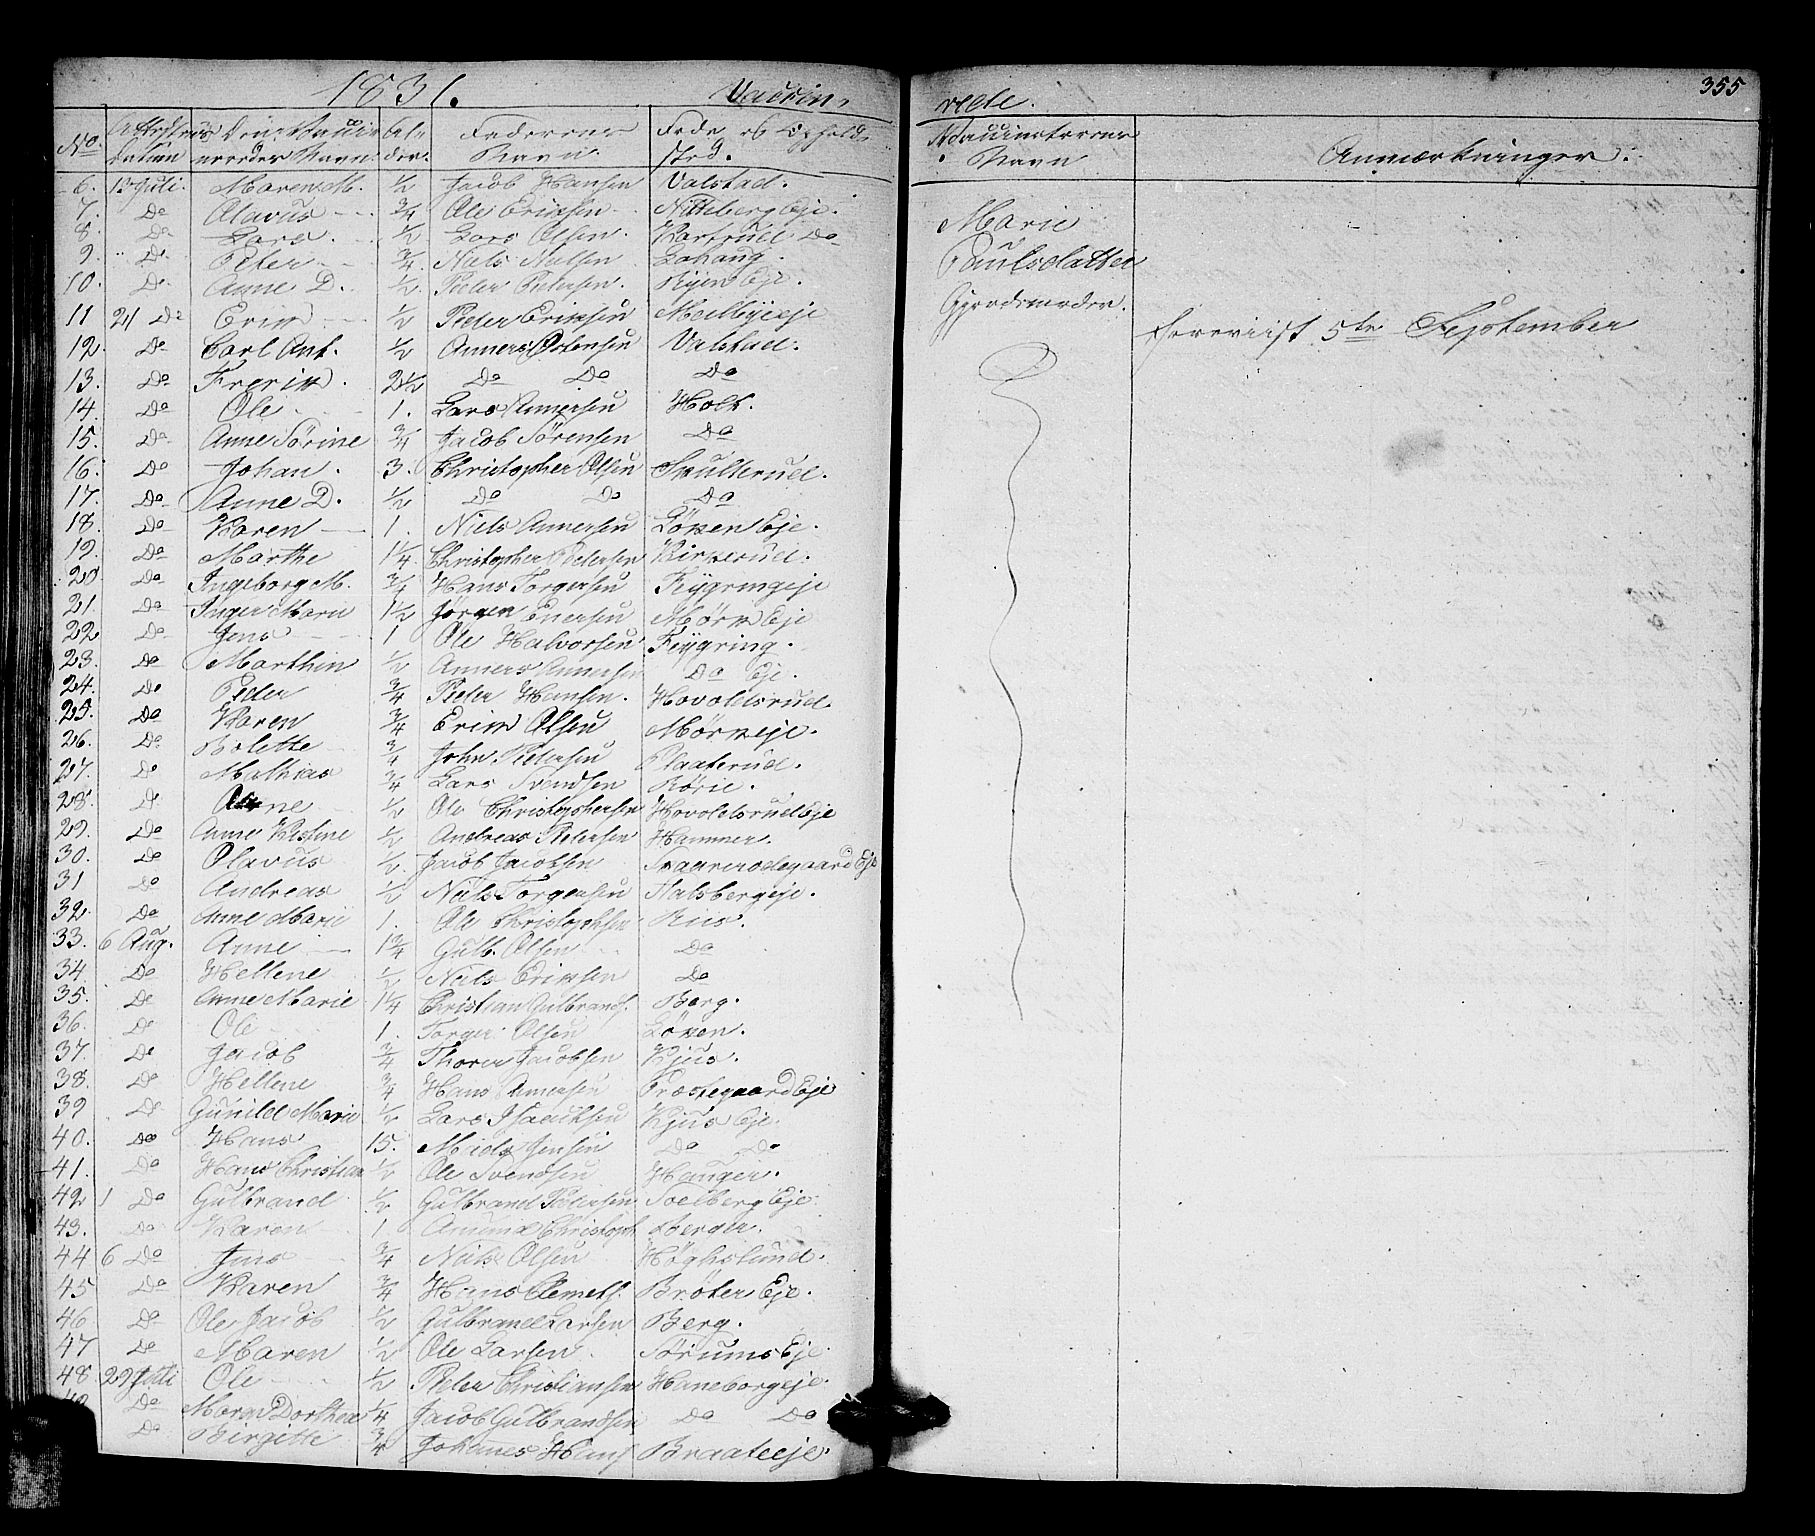 1831. Vaccin-
No. Den Vacci- Al- Faderens Føde og Opholds
neredes Navn. der. Navn. sted.
6. 13 Juli. Maren M. 1/2 Jacob Hansen Valstad.
7. Do Olavus 3/4 Ole Eriksen Nitteberg Eje.
8. Do Lars 1/2 Lars Olsen. Do
9. Do Peter 3/4 Niels Nielsen
10. Do Anne D. 1/2 Peder Pedersen. Ryen Eje.
11 21 Do Erik 1/2 Peder Eriksen
12. Do Carl Ant. 1/2 Anners Østensen Valstad.
13. Do Frerik. 2 1/2 Do Do Do
14. Do Ole 1. Lars Annersen Holt.
15. Do Anne Sørine 3/4 Jacob Sørensen Do
16. Do Johan. 3. Christopher Olsen Skullerud.
17. Do Anne D. 1/2 Do Do Do
18. Do Karen 1. Niels Annersen Løken Eje.
19. Do Marthe 1 1/4 Christopher Pedersen Kirkerud.
20. Do Ingeborg M. 3/4 Hans Torgersen Feygringeje
21. Do Inger Marie 1 1/2 Jørgen Enersen Mørk Eje
22 Do Jens 1 Ole Halvorsen Feygring.
23. Do Marthin 1/2 Anners Annersen Do Eje.
24. Do Peder 3/4 Peder Hansen. Hovoldsrud.
25. Do Karen 3/4 Erik Olsen Mørkeje.
26. Do Bolette 3/4 John Pedersen Plaaterud.
27. Do Mathias 3/4 Lars Svendsen
28. Do Anne 1/2 Ole Christophersen Hovoldsrud Eje
29. Do Anne Kistine 1/2 Andreas Pedersen Hammer.
30. Do Olavus 1/2. Jacob Jacobsen Eje
31 Do Andreas 1/2 Niels Torgersen Halsbergeje.
32. Do Anne Marie 1. Ole Christophsen Riis.
33. 6 Aug. Anne 1 3/4 Gulb. Olsen Do
34 Do Hellene 1/2 Niels Eriksen Do
35. Do Anne Marie 1 1/4 Christian Gulbrands. Berg.
36. Do Ole 1. Torger Olsen Løken.
37. Do Jacob 3/4 Thorer Jacobsen Kjus.
38. Do Hellene 3/4 Hans Annersen Præstegaard Eje
39 Do Gunild Marie 1/2 Lars Isaachsen Kjus Eje.
40. Do Hans 15. Jensen Do Do
41. Do Hans Christian 1/2 Ole Svendsen Hauger.
42 1 Do Gulbrand 1/2 Gulbrand Pedersen Toelberg Eje.
43. Do Karen 1 Amund Christoph. Berger.
44 6 Do Jens 3/4 Niels Olsen Høghslund.
45 Do Karen 3/4 Hans Clemets. Brøter Eje.
46 Do Ole Jacob 1/2 Gulbrand Larsen Berg.
47 Do Maren 1/2 Ole Larsen. Tørums Eje.
48 29 Juli Ole 1/2 Peder Christiansen Haneborgeje.
Do Maren Dorthea 1/4 Jacob Gulbrandsen Do Do
Do Birgitte 3/4 Johannes Hans Braateeje.
355
rede.
Vaccinateurens
Navn Anmærkninger.
Marie
Paulsdatter
Gjordemoder.
foreviist 5te September